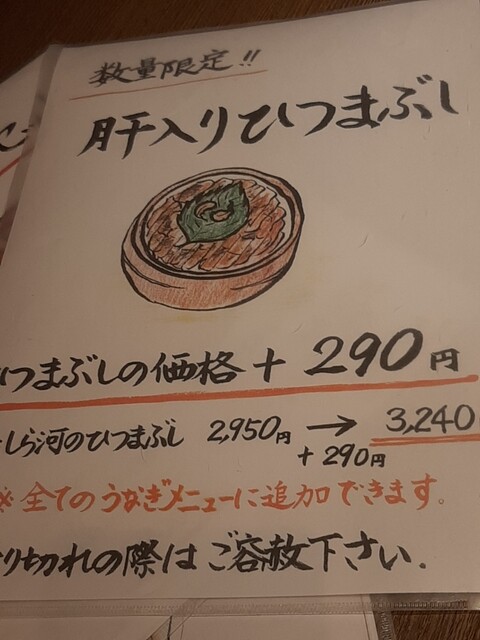 数量限定!!
肝入りひつまぶし
つまぶしの価格+290円
しら河のひつまぶし 2,950円 → 3,240
+290円
※全てのうなぎメニューに追加できます。
り切れの際はご容赦下さい.